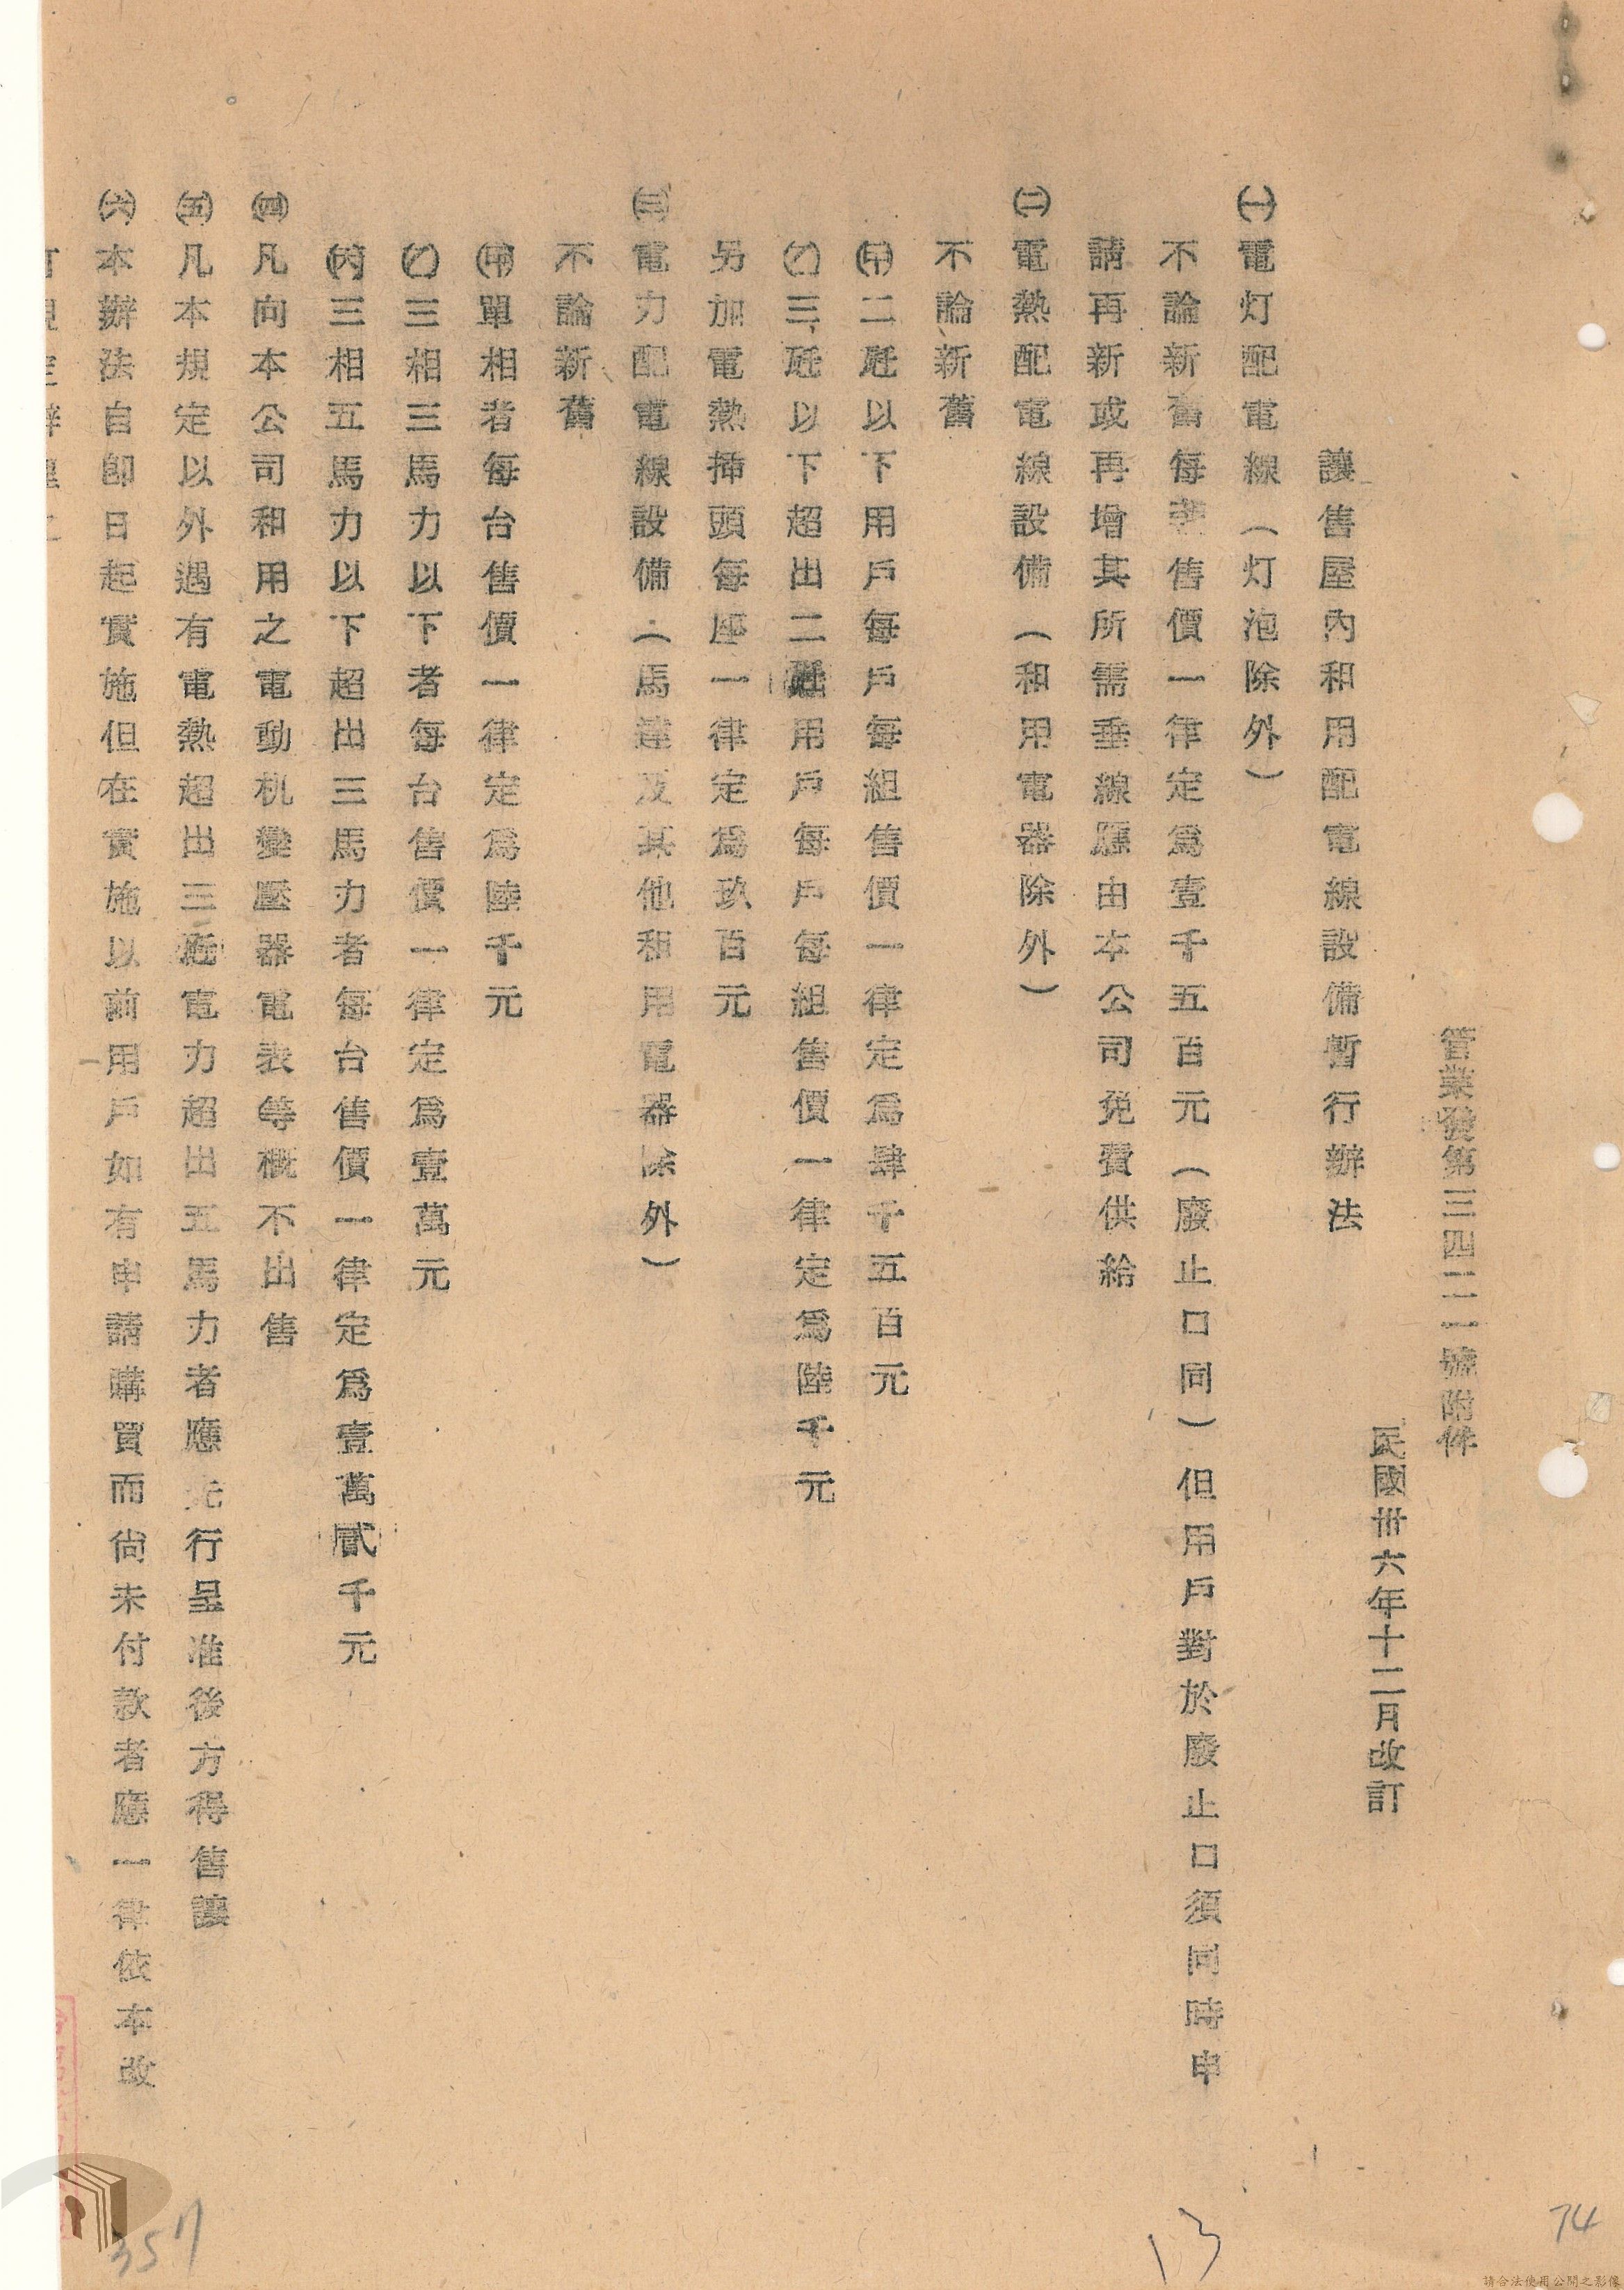 管業發第三四二二號附件
民國卅六年十二月改訂
讓售屋內和用配電線設備暫行辦法
㈠電灯配電線（灯泡除外）
不論新舊每售價一律定爲壹千五百元（廢止口同）但用戶對於廢止口須同時申
請再新或再增其所需垂線應由本公司免費供給
㈡電熱配電線設備（和用電器除外）
不論新舊
(甲)二瓩以下用戶每戶每組售價一律定爲肆千五百元
(乙)三瓩以下超出二瓩用戶每戶每組售價一律定爲陸千元
另加電熱揷頭每座一律定爲玖百元
㈢電力配電線設備（馬達及其他和用電器除外）
不論新舊
(甲)單相者每台售價一律定爲陸千元
(乙)三相三馬力以下者每台售價一律定爲壹萬元
(丙)三相五馬力以下超出三馬力者每台售價一律定爲壹萬貳千元
㈣凡向本公司和用之電動机變壓器電表等概不出售
㈤凡本規定以外遇有電熱超出三瓩電力超出五馬力者應先行呈准後方得售讓
㈥本辦法自卽日起實施但在實施以前用戶如有申請購買而尙未付款者應一律依本改
訂規定辦理之
357
13
74
請合法使用公開之影像